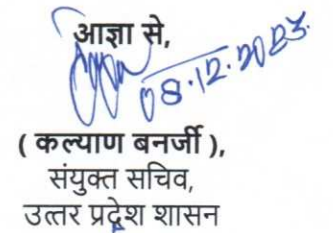 आज्ञा से,
08.12.2023.
( कल्याण बनर्जी ),
संयुक्त सचिव,
उत्तर प्रदेश शासन